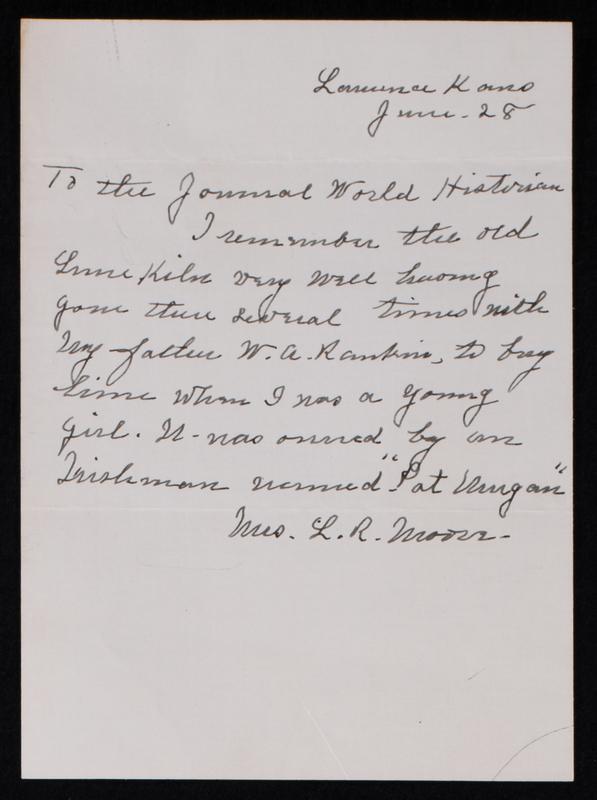 Lawrence Kans
June - 28
To the Journal World Historian
I remember the old
Lime Kiln very well having
gone there several times with
my father W. A. Rankin, to buy
lime when I was a young
girl. It was owned by an
Irishman named "Pat
Mrs. L. R. Moore -